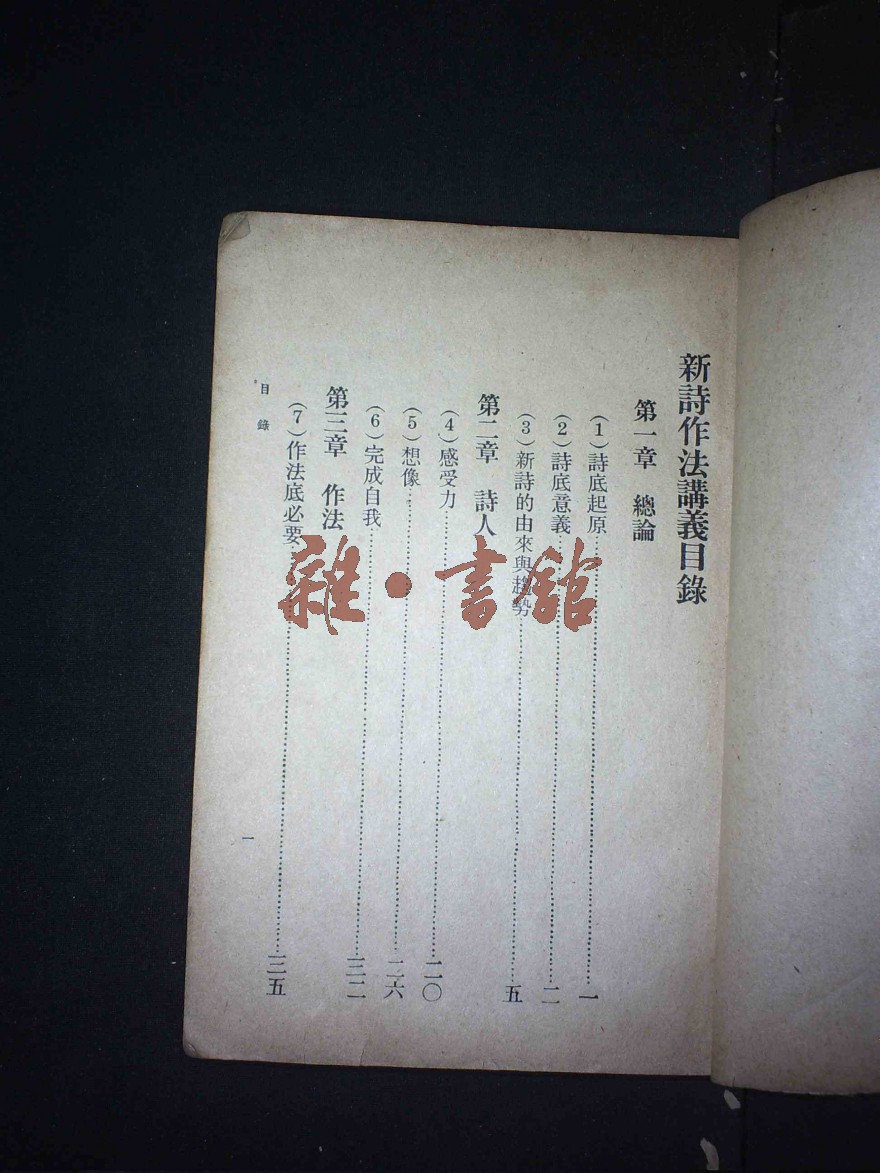 新詩作法講義目錄
第一章　總論
（1）詩底起原…一
（2）詩底意義…二
（3）新詩的由來與趨勢…五
第二章　詩人
（4）感受力…二〇
（5）想像…二六
（6）完成自我…三二
第三章　作法
（7）作法底必要…三五
目錄
一
雜·書館